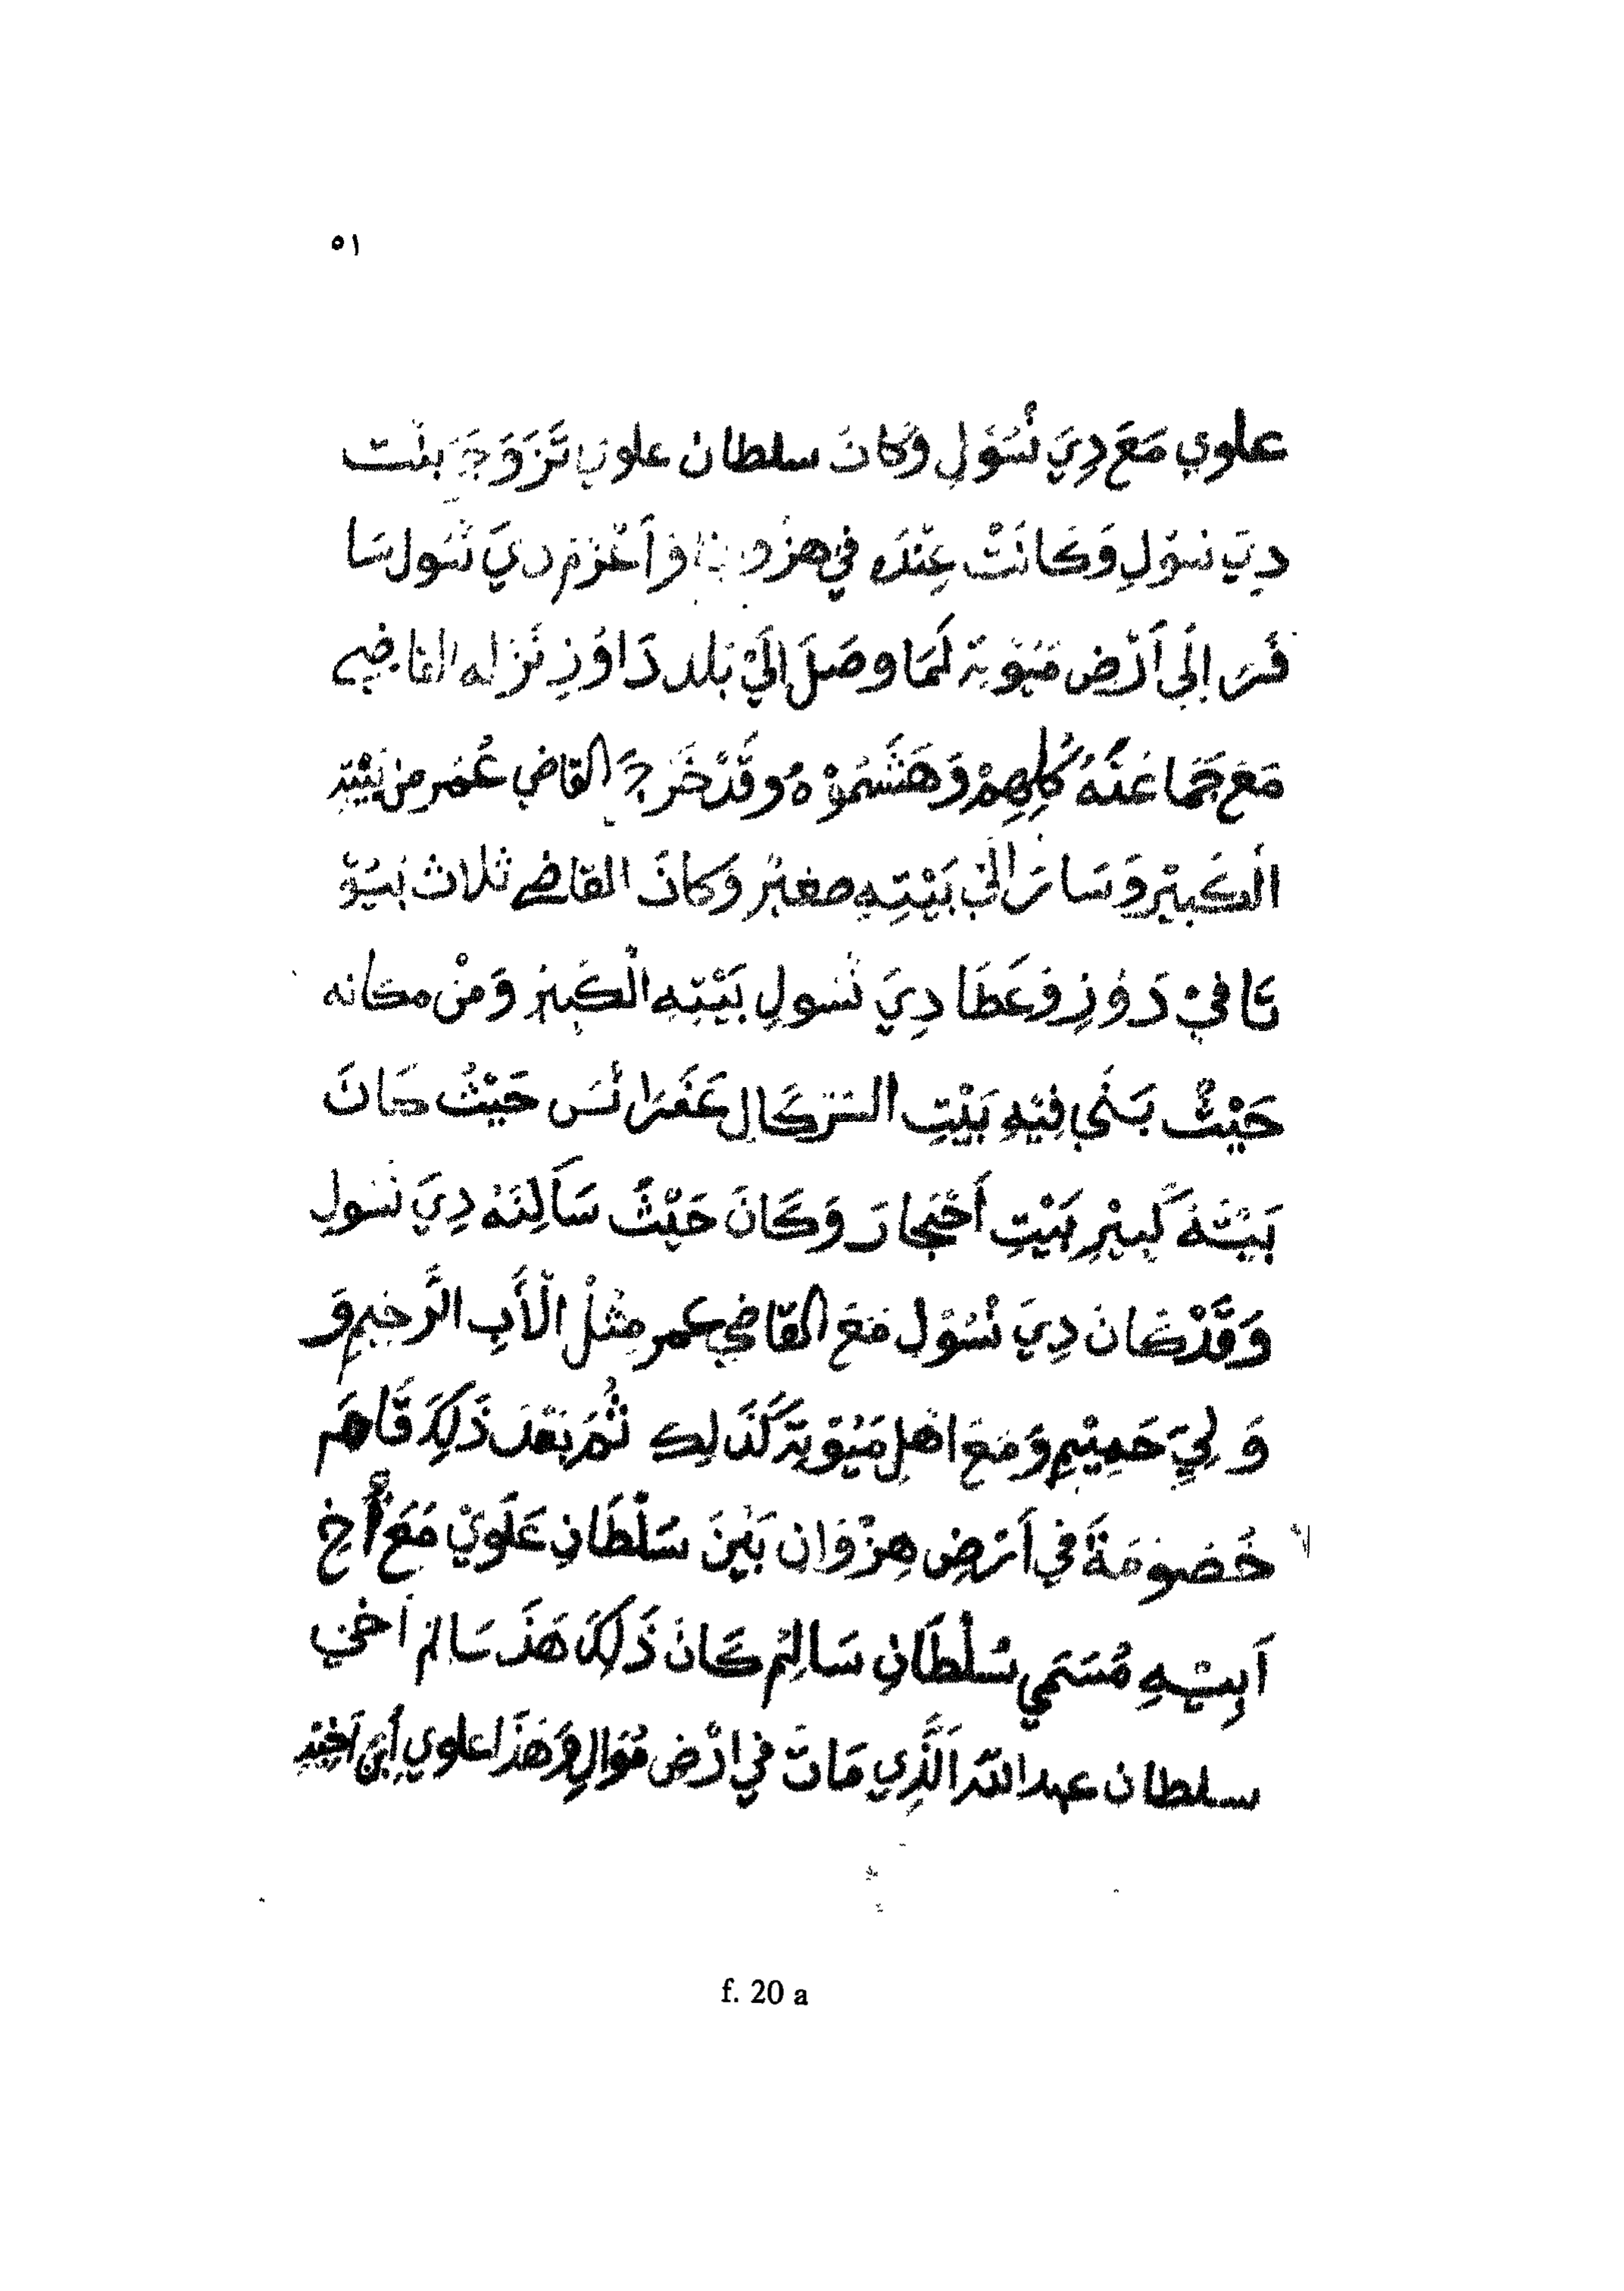 ٥١
علوي مَعَ دِيَ نْسُوْلِ وَكَانَ سلطان علوي تَزَوَجَ بنْت
ديَ نسوْلِ وَكَانَتْ عِنْدَهُ في هزو وَاَعْزَمَ دِيَ نْسُول سَا
فَرَ اِلَى اَرْضِ مَيُوْتِهْ لَمَا وصَلَ اِلَيْ بَلد دَاوُزِ نَزَ له القاضي
مَعَ جَمَاعَتُهُ كُلِهِمْ وَهَشَمُوْهُ وقَدْ خَرَجَ القاضي عُمَر مِنْ بَيْتِهِ
الْكَبِيْرِ وَسَارَ اِلَيْ بَيْتِهِ صغيْر وَكانَ القاضي ثلاث بَيُوْ
تَا فيْ دَوُزِ وَعَطَا دِيَ نْسُولِ بَيْتِهِ الْكَبِيْرْ وَمنْ مكانه
حَيْثُ بَنَي فِيْهِ بَيْتِ السَرَكَالِ عَفَرَانْسَ حَيْثُ كَانَ
بَيْتَهُ كَبِيْرِ بَيْتِ اَحْجَارَ وَكَانَ حَيْثُ سَالِتَهُ دِيَ نْسُولِ
وَقَدْ كَانَ دِيَ نْسُوْلِ مَعَ القاضي عمر مِثْلُ الْأَبِ الرَّحِيمِ وَ
وَلِيَ حَمِيْمِ وَمَعَ اهْلِ مَيُوْتِهْ كَذَالِك ثُمَ بَعْدَ ذَلِكَ قَاهَمَ
خُصُومَةً في اَرَضِ هِزْوَان بَيْنَ سَلْطَانِ عَلَوِيْ مَعَ أُخِ
اَبِيْهِ مُسَمَي سُلْطَانِ سَالِمُ كَانَ ذَلِكَ هَذَ سَالِمْ اَخي
سلطان عبد اللّه الَّذِي مَاتَ في ارْض مُوَالِ وَهَذَا علوي اِبْنَ اَخِيْهِ
f. 20 a